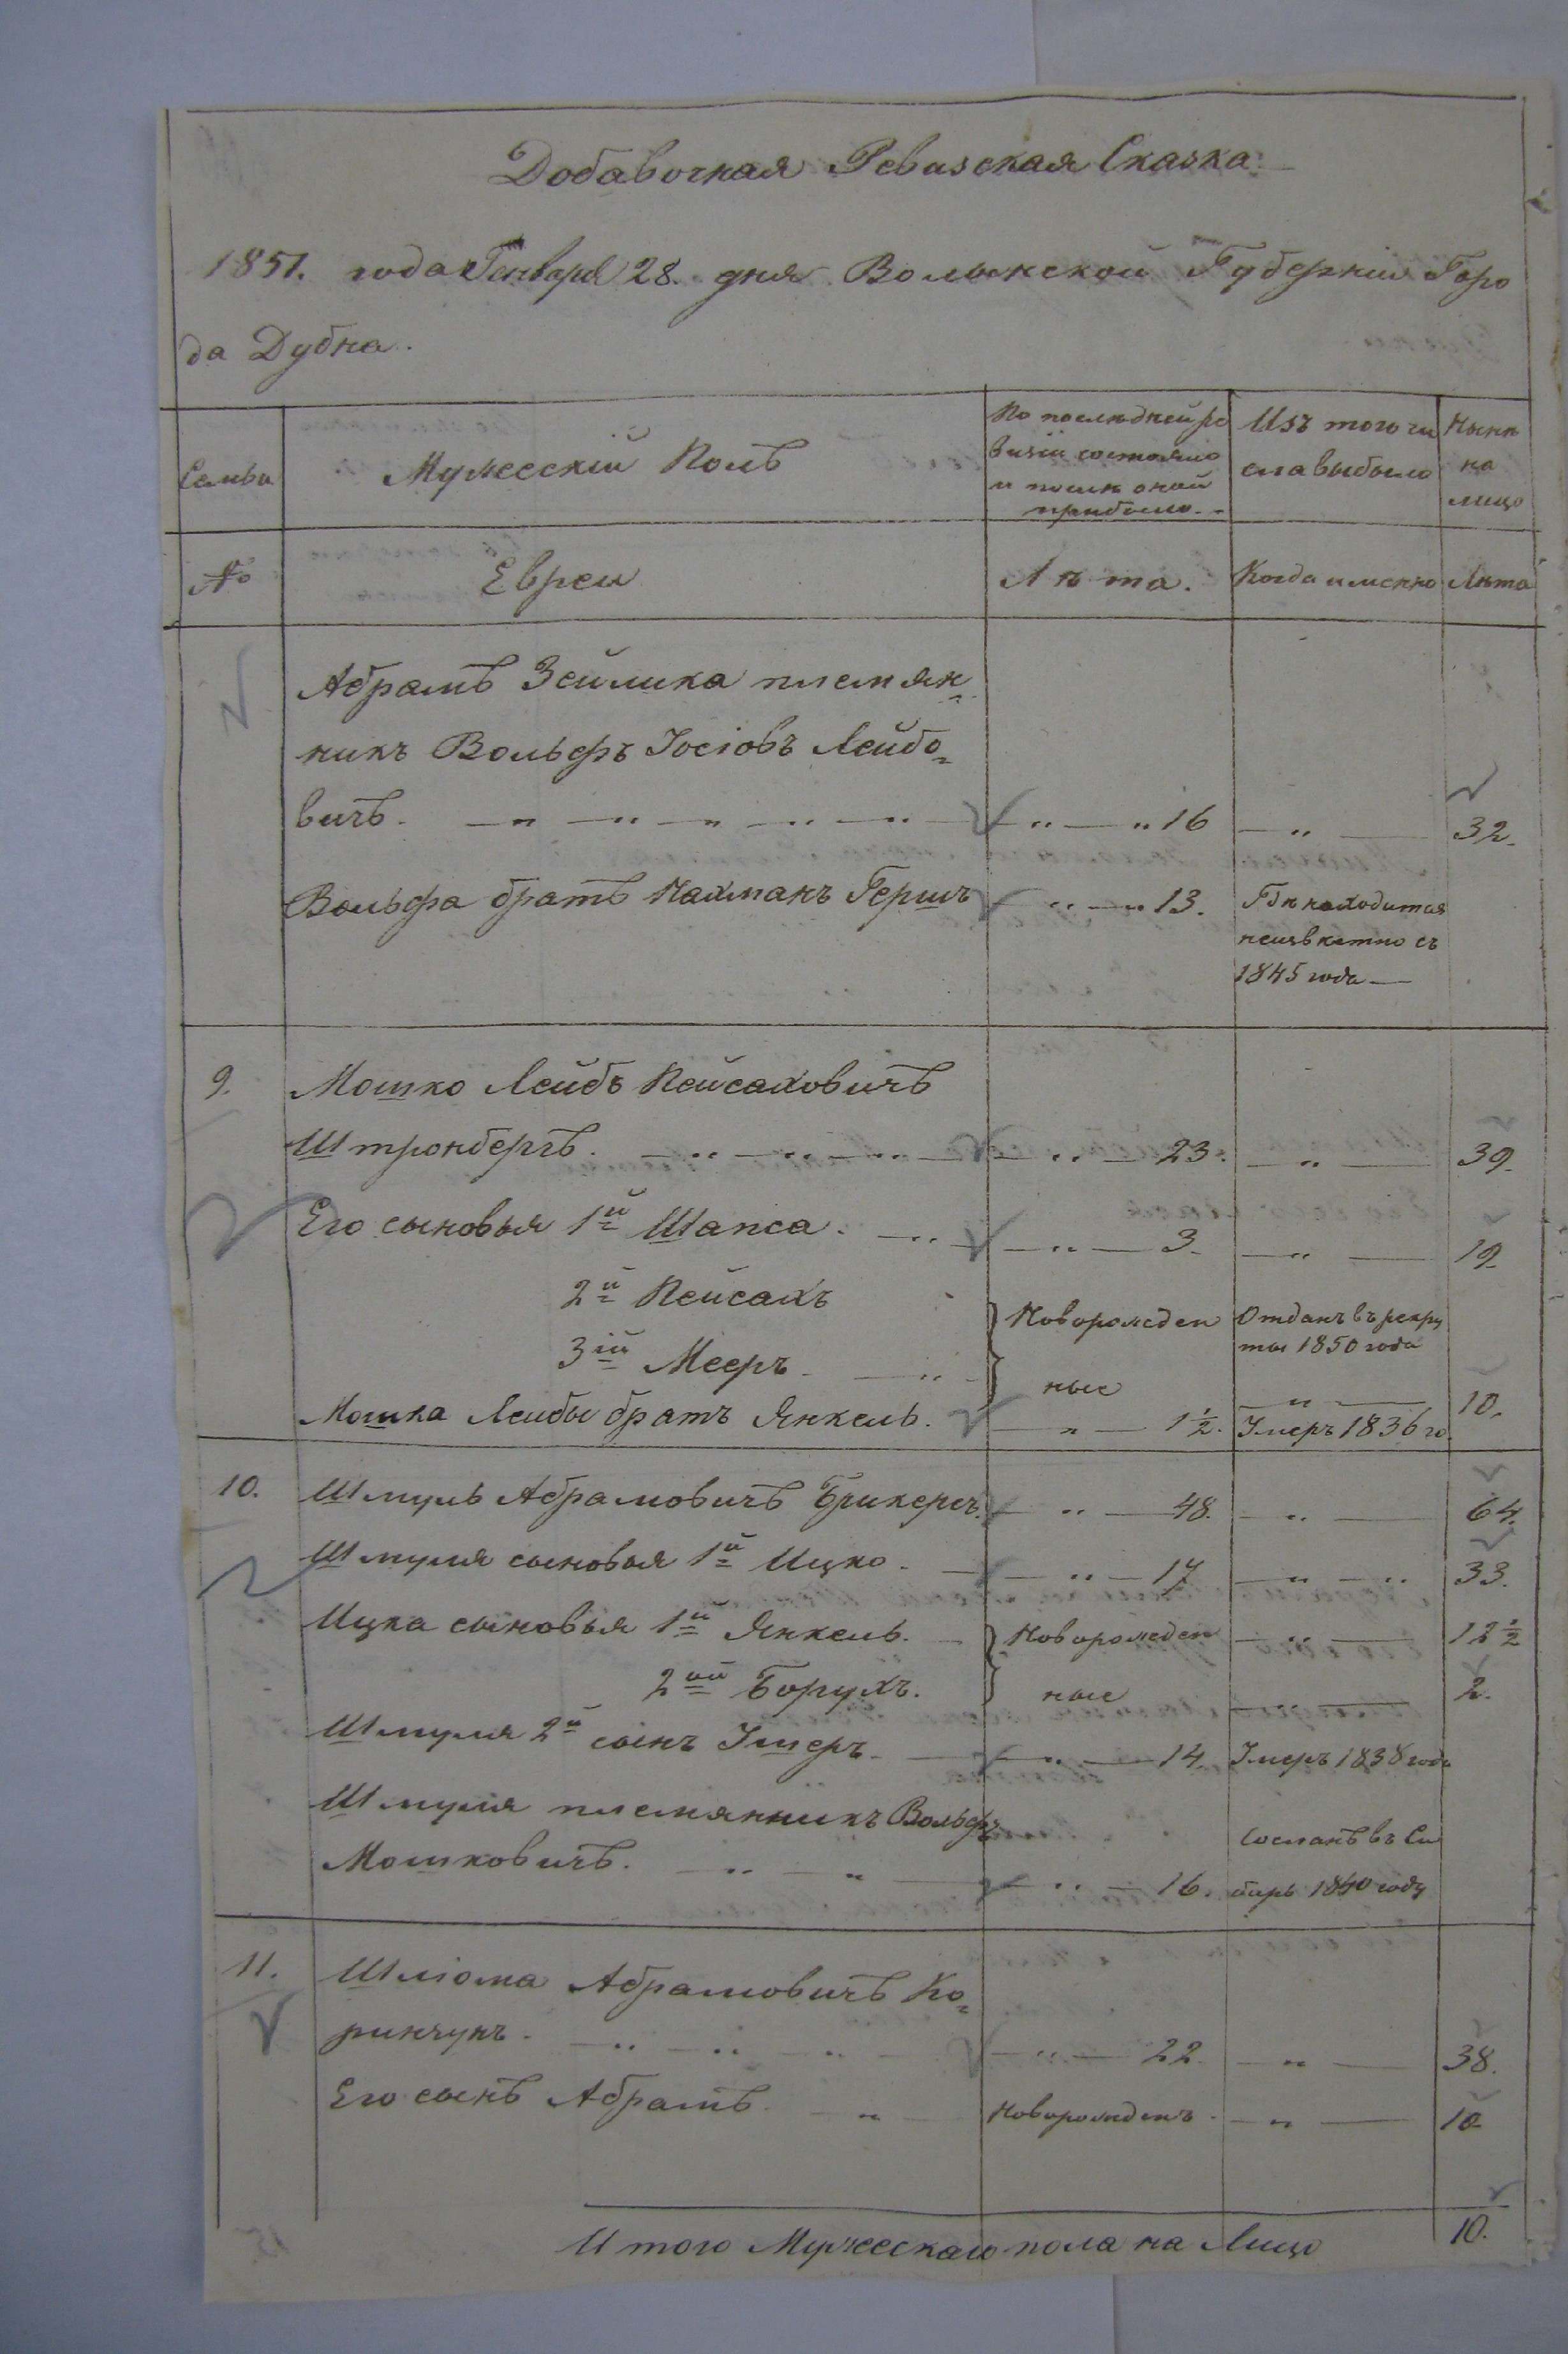 Добавочная Ревизская Сказка
1851. года Генваря 28. дня Волынской Губерніи Горо
да Дубна.
Семьи
Мужескій Полъ
По последней ре
визіи состояло
и послѣ оной
прибыло.
Изъ того чи
сла выбыло
Нынѣ
на
лицо
№
Евреи
Лѣта.
Когда именно
Лѣта
Абрамъ Зейлика племян=
никъ Вольфъ Іосіовъ Лейбо=
вичъ. 16 " 32.
Вольфа братъ Нахманъ Гершъ 13. Гдѣ находится
неизвѣстно съ
1845 года
9. Мошко Лейбъ Пейсаховичъ
Штронбергъ. 23. " 39.
Его сыновья 1й Шапса. 3. " 19
2й Пейсахъ Новорожден Отданъ въ рекру
ты 1850 года
3ій Мееръ ные " 10.
Мошка Лейбы братъ Янкель. 1½. Умеръ 1836 го.
10. Шмуль Абрамовичъ Брикеръ. 48. " 64.
Шмуля сыновья 1й Ицко. 17 " 33.
Ицка сыновья 1й Янкель. Новорожден " 12½
2ой Борухъ. ные 2.
Шмуля 2й сынъ Умеръ 14. Умеръ 1838 года
Шмуля племянникъ Вольфъ
Мошковичъ. 16. Сосланъ въ Си
бирь 1840 году
11. Шліома Абрамовичъ Ко=
ринчукъ. 22. " 38.
Его сынъ Абрамъ. " Новорожденъ. " 10
Итого Мужескаго пола на Лицо 10.